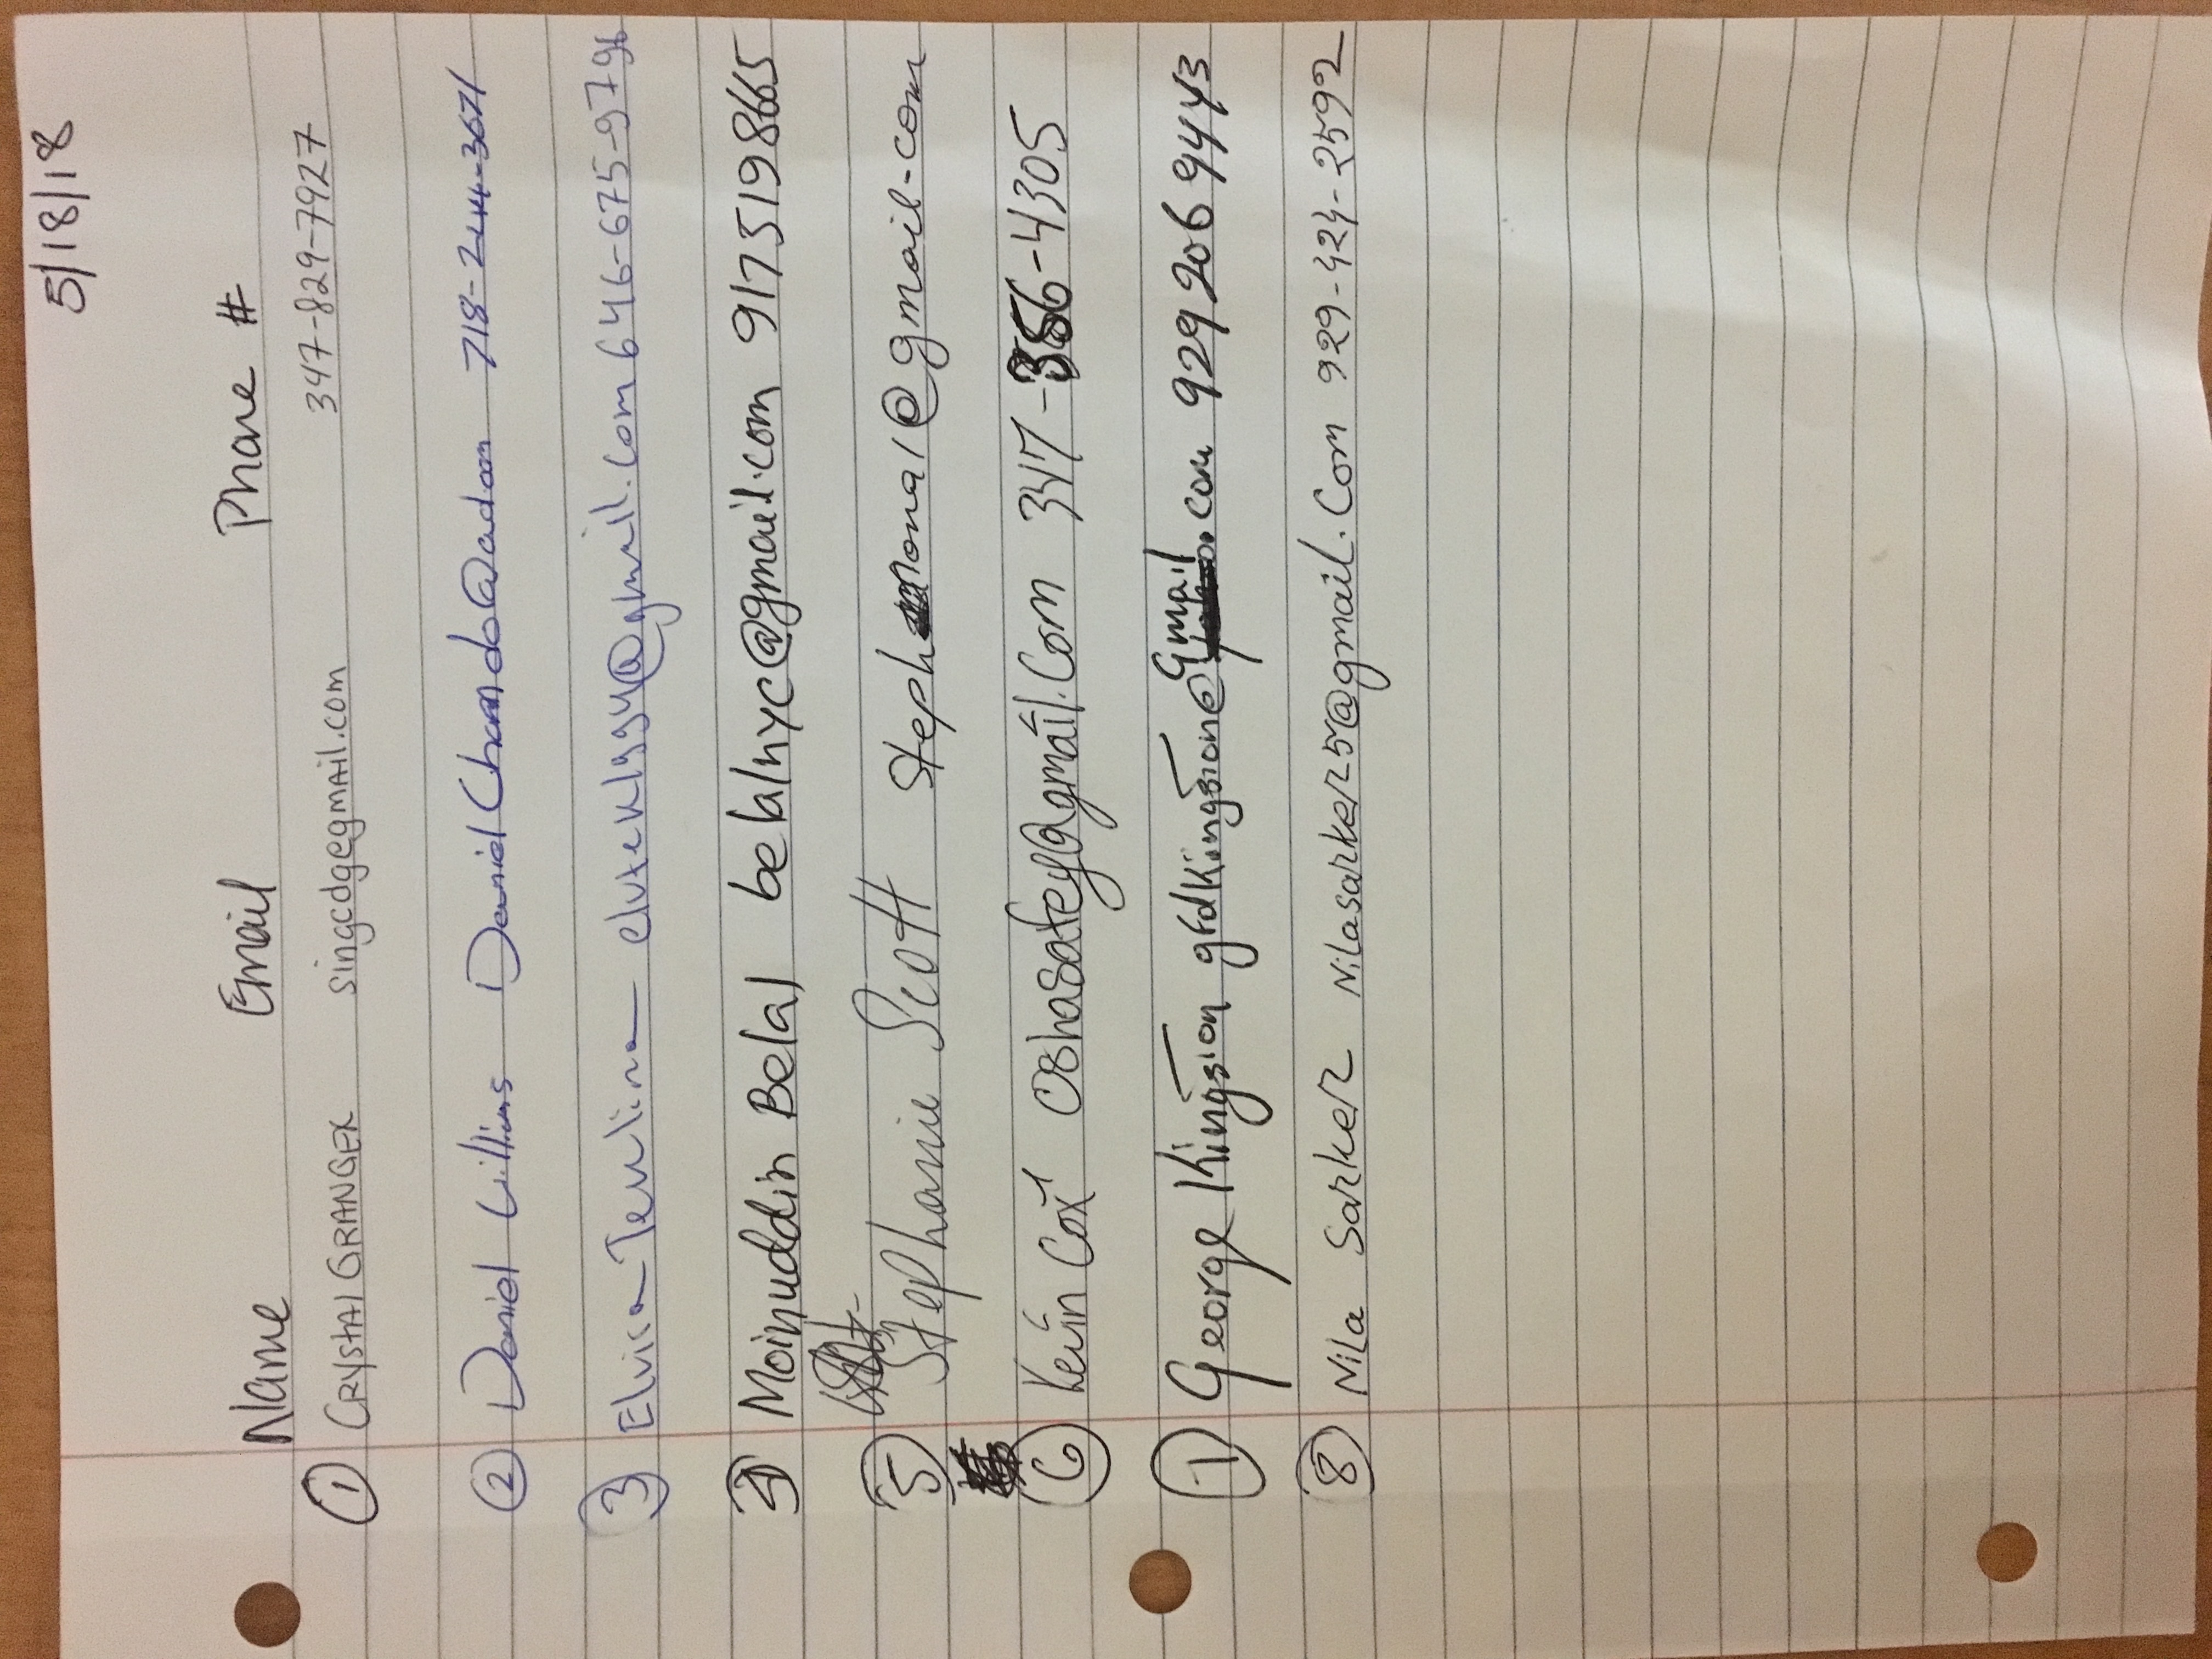 5/18/18
Name Email Phone #
① CRYSTAl GRANGER singcdg@gmail.com 347-829-7927
② Daniel 718-244-3671
③ Elvira Teklina elvtek1994@gmail.com 646-675-9796
④ Moinuddin Belal belalnyc@gmail.com 9175198665
⑤ Stephanie Scott Stephmona1@gmail.com
⑥ Kevin Cox Oshasafey@gmail.Com 347-356-4305
⑦ George Kingston gtdkingston@Gmail.com 929 206 9443
⑧ Nila Sarker Nilasarker25@gmail.Com 929-424-2592